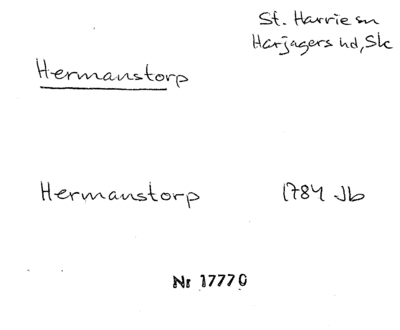 St. Harrie sn
Harjagers hd, Sk
Hermanstorp
Hermanstorp 1784 Jb
Nr 17770